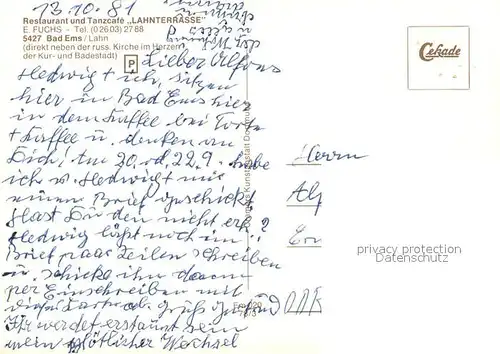 13.10.81
Restaurant und Tanzcafé „LAHNTERRASSE"
E. FUCHS - Tel. (0 26 03) 27 88
5427 Bad Ems / Lahn
(direkt neben der russ. Kirche im Herzen
der Kur- und Badestadt)
P
Cekade
Lieber Alfons
Hedwig + ich, sitzen
hier in Bad Ems hier
in dem Kaffee bei Torte
+ Kaffee u. denken an
Dich, Am 20. od. 22.9. habe
ich u. Hedwig mit
einen Brief geschickt
Hast Du den nicht erh?
Hedwig läßt noch im
Brief paar Zeilen schreiben
u. schicke ihn dann
per Einschreiben mit
diese Karte ab. Gruß
Ihr werdet erstaunt sein
mein plötlicher Wechsel
Herrn
Alf
DDR
privacy protection
Datenschutz